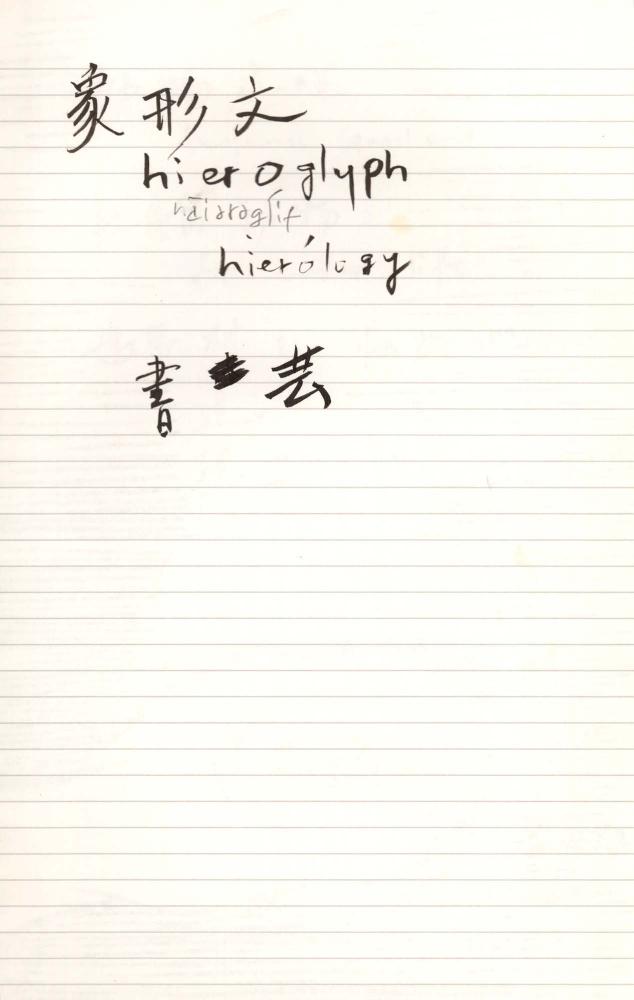 象形文
hieroglyph
háiərəglìf
hierólogy
書芸